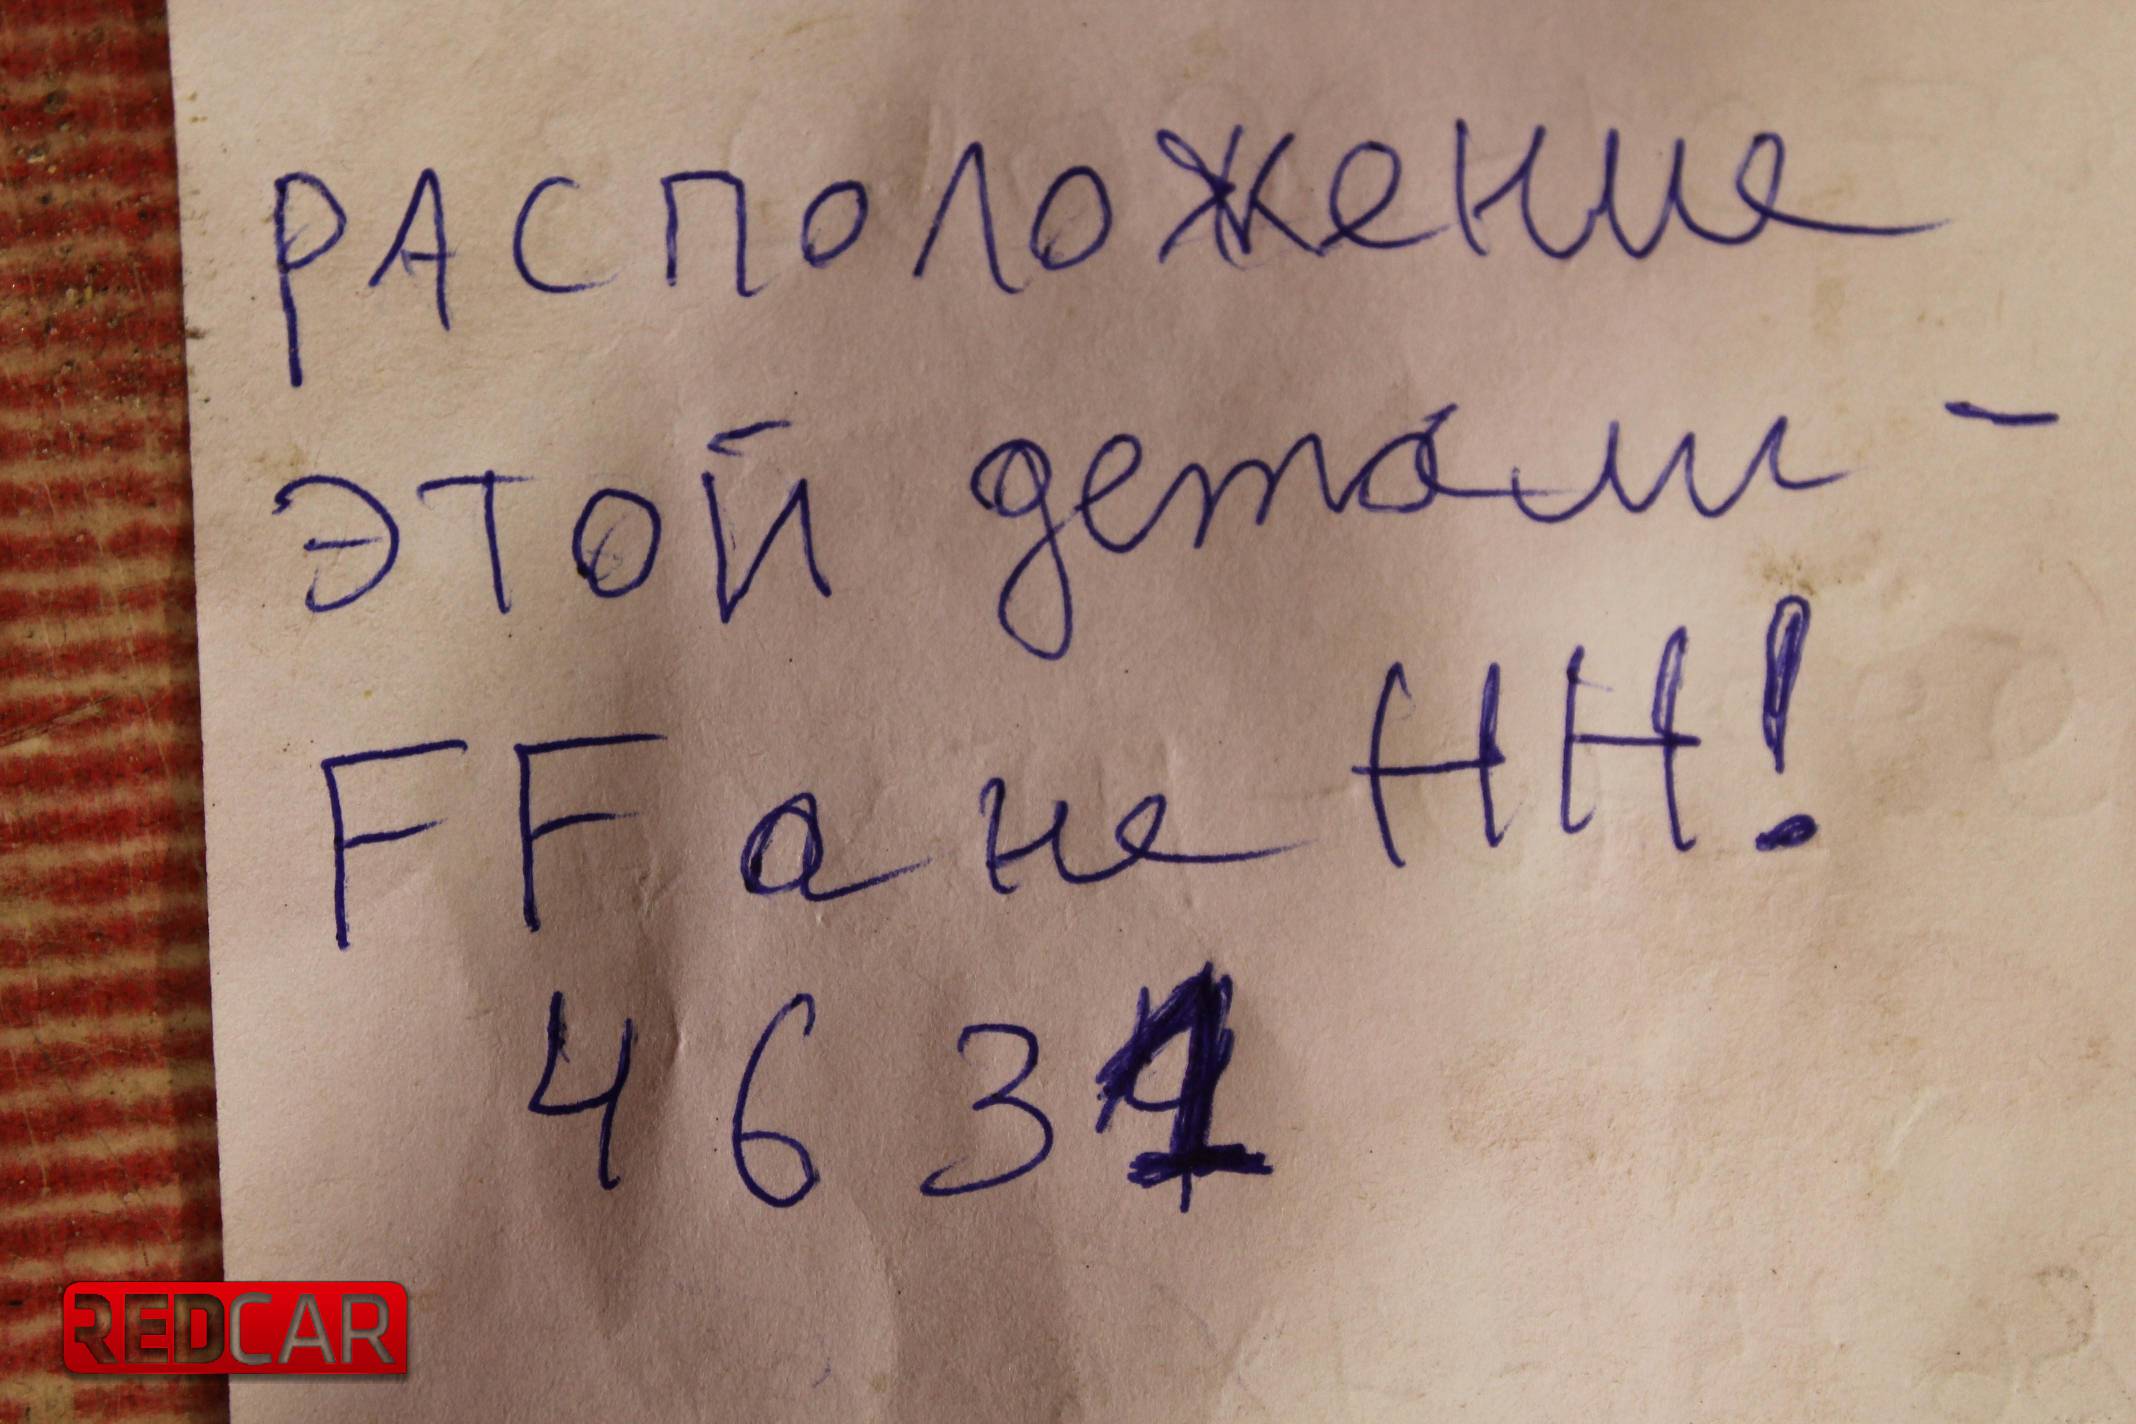 РАСПОЛОЖЕНИЕ
ЭТОЙ детали -
FF а не НН!
4631
REDCAR